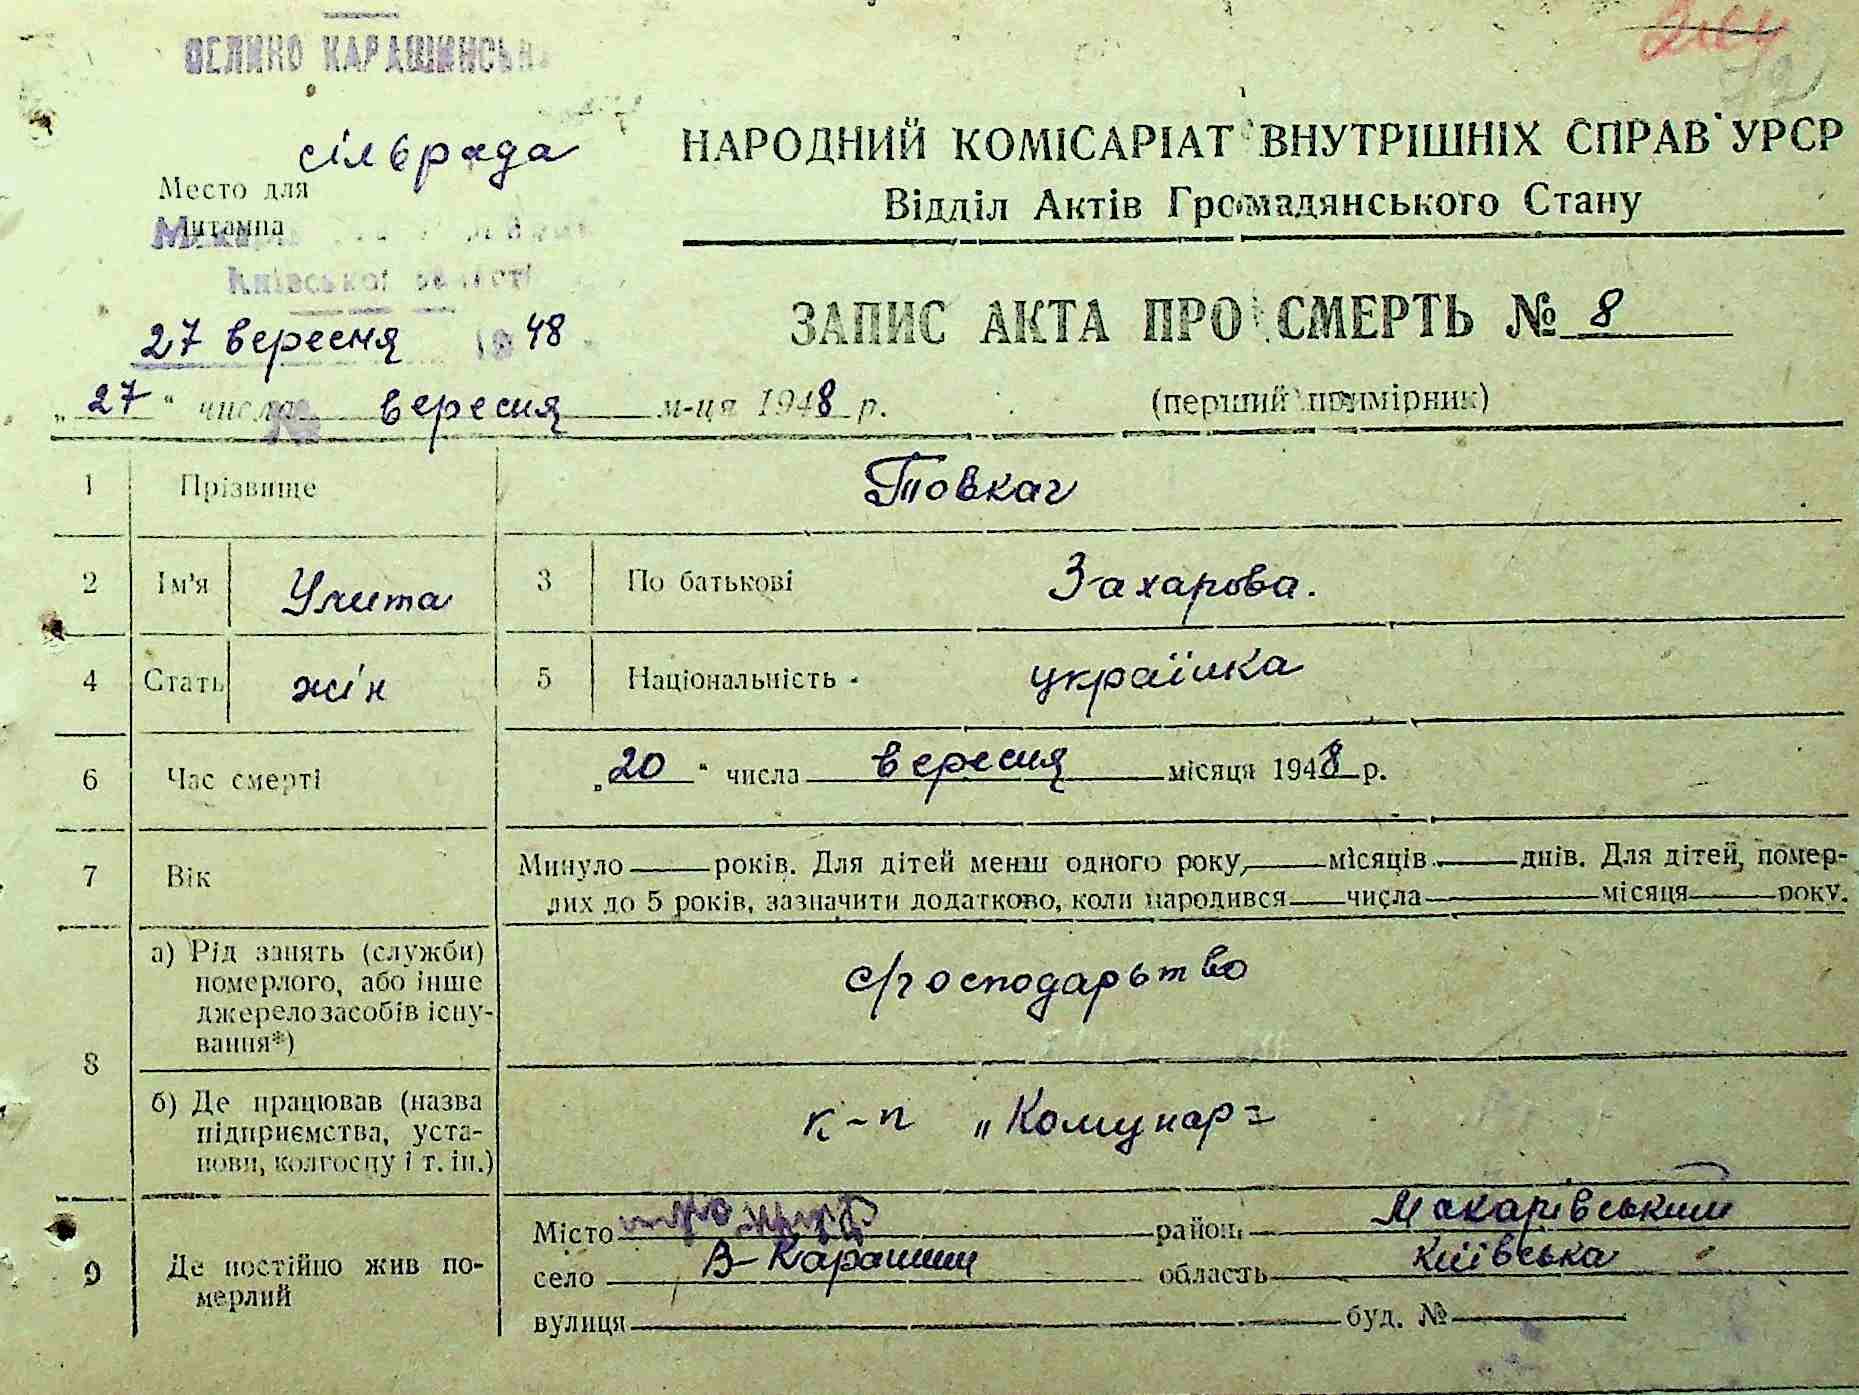 ВЕЛИКО КАРАШИНСЬКА
сільрада
Место для
штампа
Київської області
27 вересня 1948
НАРОДНИЙ КОМІСАРІАТ ВНУТРІШНІХ СПРАВ УРСР
Відділ Актів Громадянського Стану
ЗАПИС АКТА ПРО СМЕРТЬ № 8
„27“ числа вересня м-ця 1948 р.
(перший примірник)
1 Прізвище Товкач
2 Ім'я Улита 3 По батькові Захарова.
4 Стать жін 5 Національність українка
6 Час смерті „20“ числа вересня місяця 1948 р.
7 Вік Минуло року років. Для дітей менш одного року, місяців днів. Для дітей, помер-
лих до 5 років, зазначити додатково, коли народився числа місяця року.
8 а) Рід занять (служби)
померлого, або інше
джерело засобів існу-
вання*)
с/господарьтво
б) Де працював (назва
підприємства, уста-
нови, колгоспу і т. ін.)
к-п „Комунар"
9 Де постійно жив по-
мерлий
Місто район Макарівський
село В-Карашин область Київська
вулиця буд. №